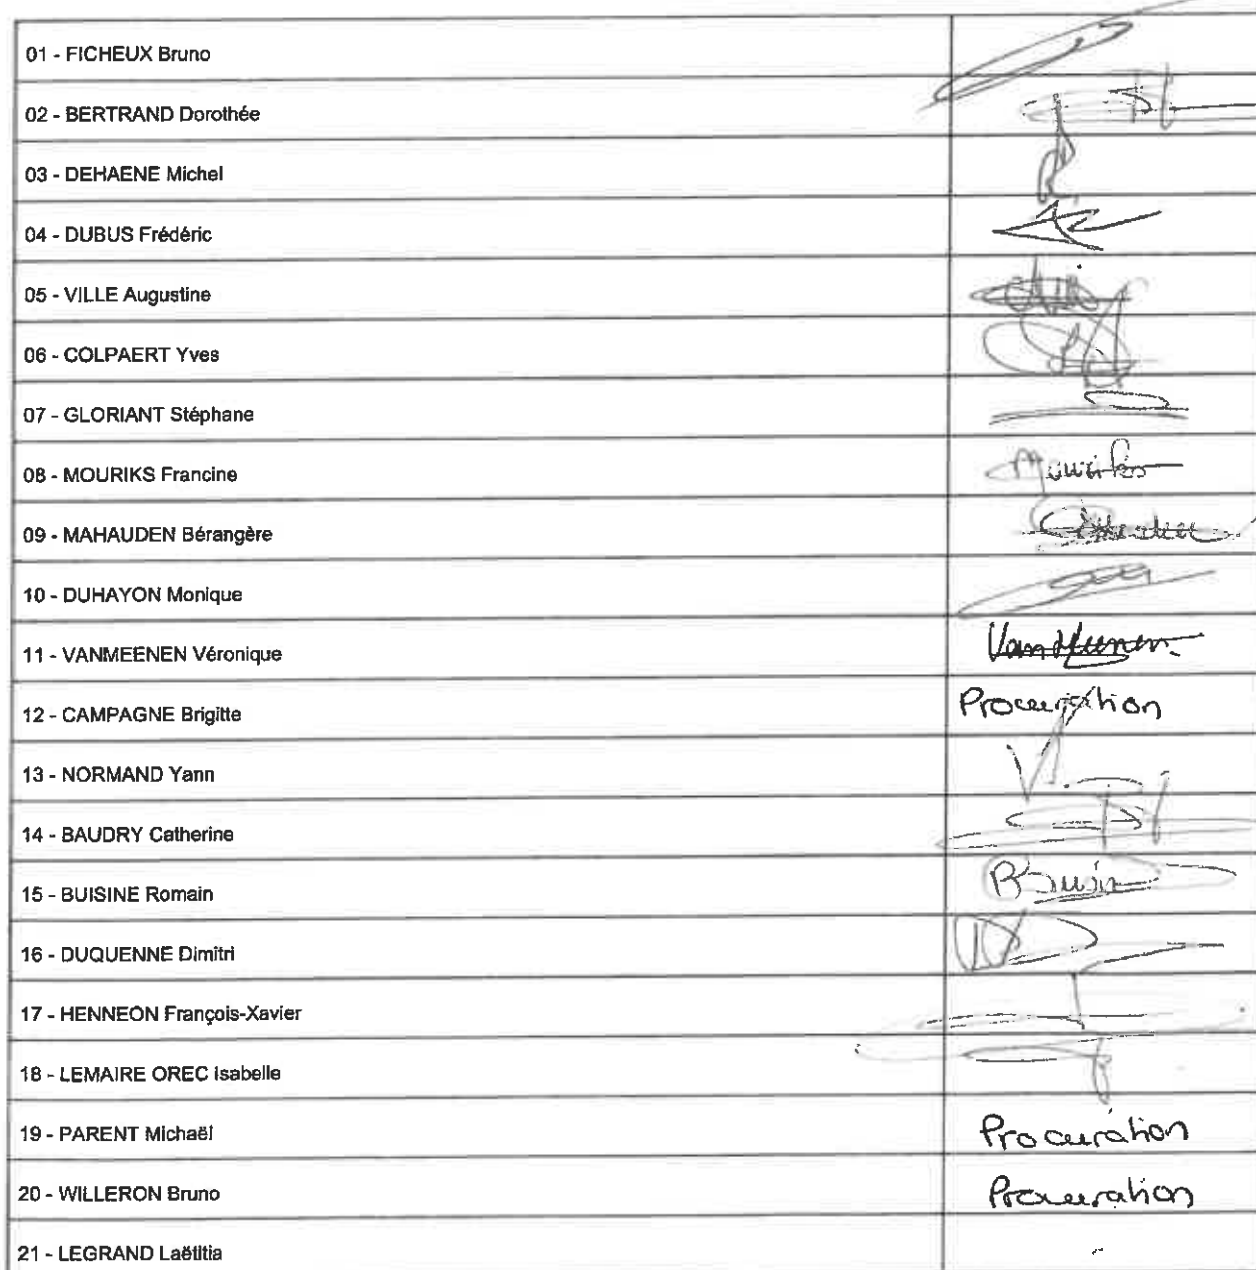 01 - FICHEUX Bruno
02 - BERTRAND Dorothée
03 - DEHAENE Michel
04 - DUBUS Frédéric
05 - VILLE Augustine
06 - COLPAERT Yves
07 - GLORIANT Stéphane
08 - MOURIKS Francine
09 - MAHAUDEN Bérangère
10 - DUHAYON Monique
11 - VANMEENEN Véronique
12 - CAMPAGNE Brigitte Procuration
13 - NORMAND Yann
14 - BAUDRY Catherine
15 - BUISINE Romain
16 - DUQUENNE Dimitri
17 - HENNEON François-Xavier
18 - LEMAIRE OREC Isabelle
19 - PARENT Michaël Procuration
20 - WILLERON Bruno Procuration
21 - LEGRAND Laëtitia